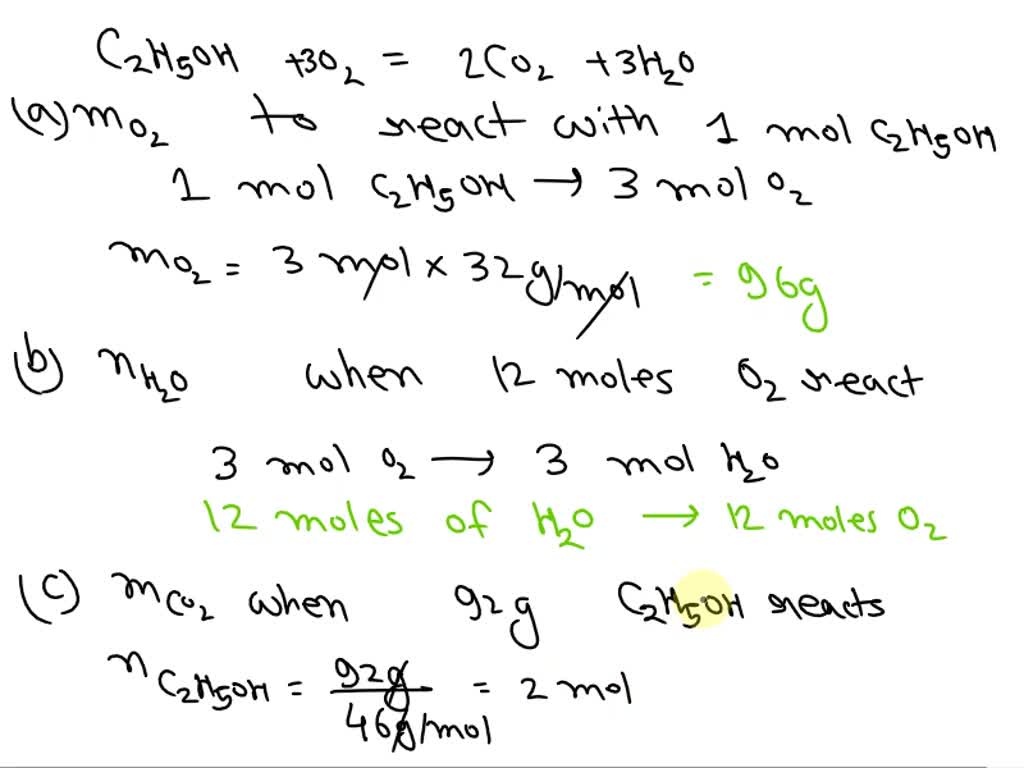 C₂H₅OH +3O₂ = 2CO₂ +3H₂O
(a) mO₂ to react with 1 mol C₂H₅OH
1 mol C₂H₅OH → 3 mol O₂
mO₂ = 3 mol × 32g/mol = 96g
(b) nH₂O when 12 moles O₂ react
3 mol O₂ → 3 mol H₂O
12 moles of H₂O → 12 moles O₂
(c) mCO₂ when 92g C₂H₅OH reacts
nC₂H₅OH = 92g / 46g/mol = 2 mol